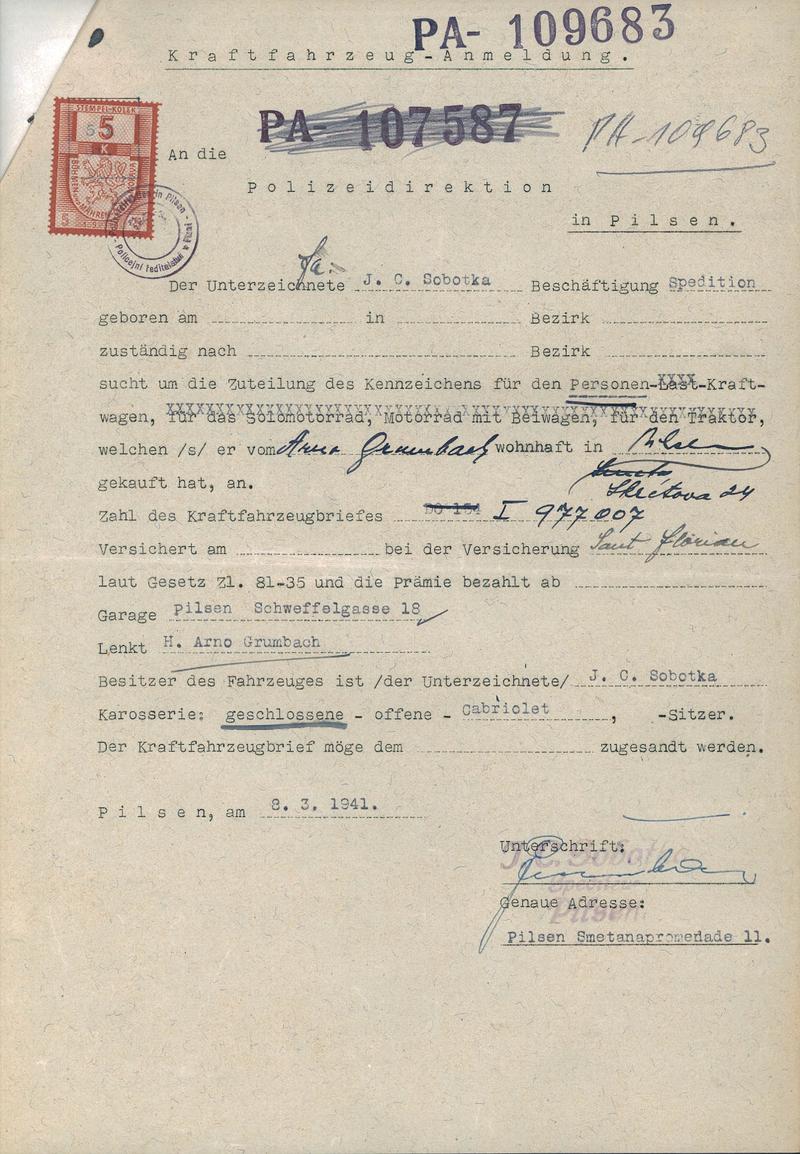 PA- 109683
Kraftfahrzeug-Anmeldung.
STEMPEL-KOLEK
5
K
BÖHMEN u. MÄHREN
5
PA- 107587
PA-109683
An die
Polizeidirektion
in Pilsen.
Fa.
Der Unterzeichnete J. C. Sobotka Beschäftigung Spedition
geboren am in Bezirk
zuständig nach Bezirk
sucht um die Zuteilung des Kennzeichens für den Personen-Last-Kraft-
wagen, für das Solomotorrad, Motorrad mit Beiwagen, für den Traktor,
welchen /s/ er vom Arno Grumbach wohnhaft in Pilsen
gekauft hat, an. Skrétova 24
Zahl des Kraftfahrzeugbriefes I 977007
Versichert am bei der Versicherung Sankt Florian
laut Gesetz Zl. 81-35 und die Prämie bezahlt ab
Garage Pilsen Schweffelgasse 18
Lenkt H. Arno Grumbach
Besitzer des Fahrzeuges ist /der Unterzeichnete/ J. C. Sobotka
Karosserie: geschlossene - offene - Cabriolet , -Sitzer.
Der Kraftfahrzeugbrief möge dem zugesandt werden.
Pilsen, am 8. 3. 1941.
Unterschrift:
J. C. Sobotka
Pilsen
Genaue Adresse:
Pilsen Smetanapromedade 11.